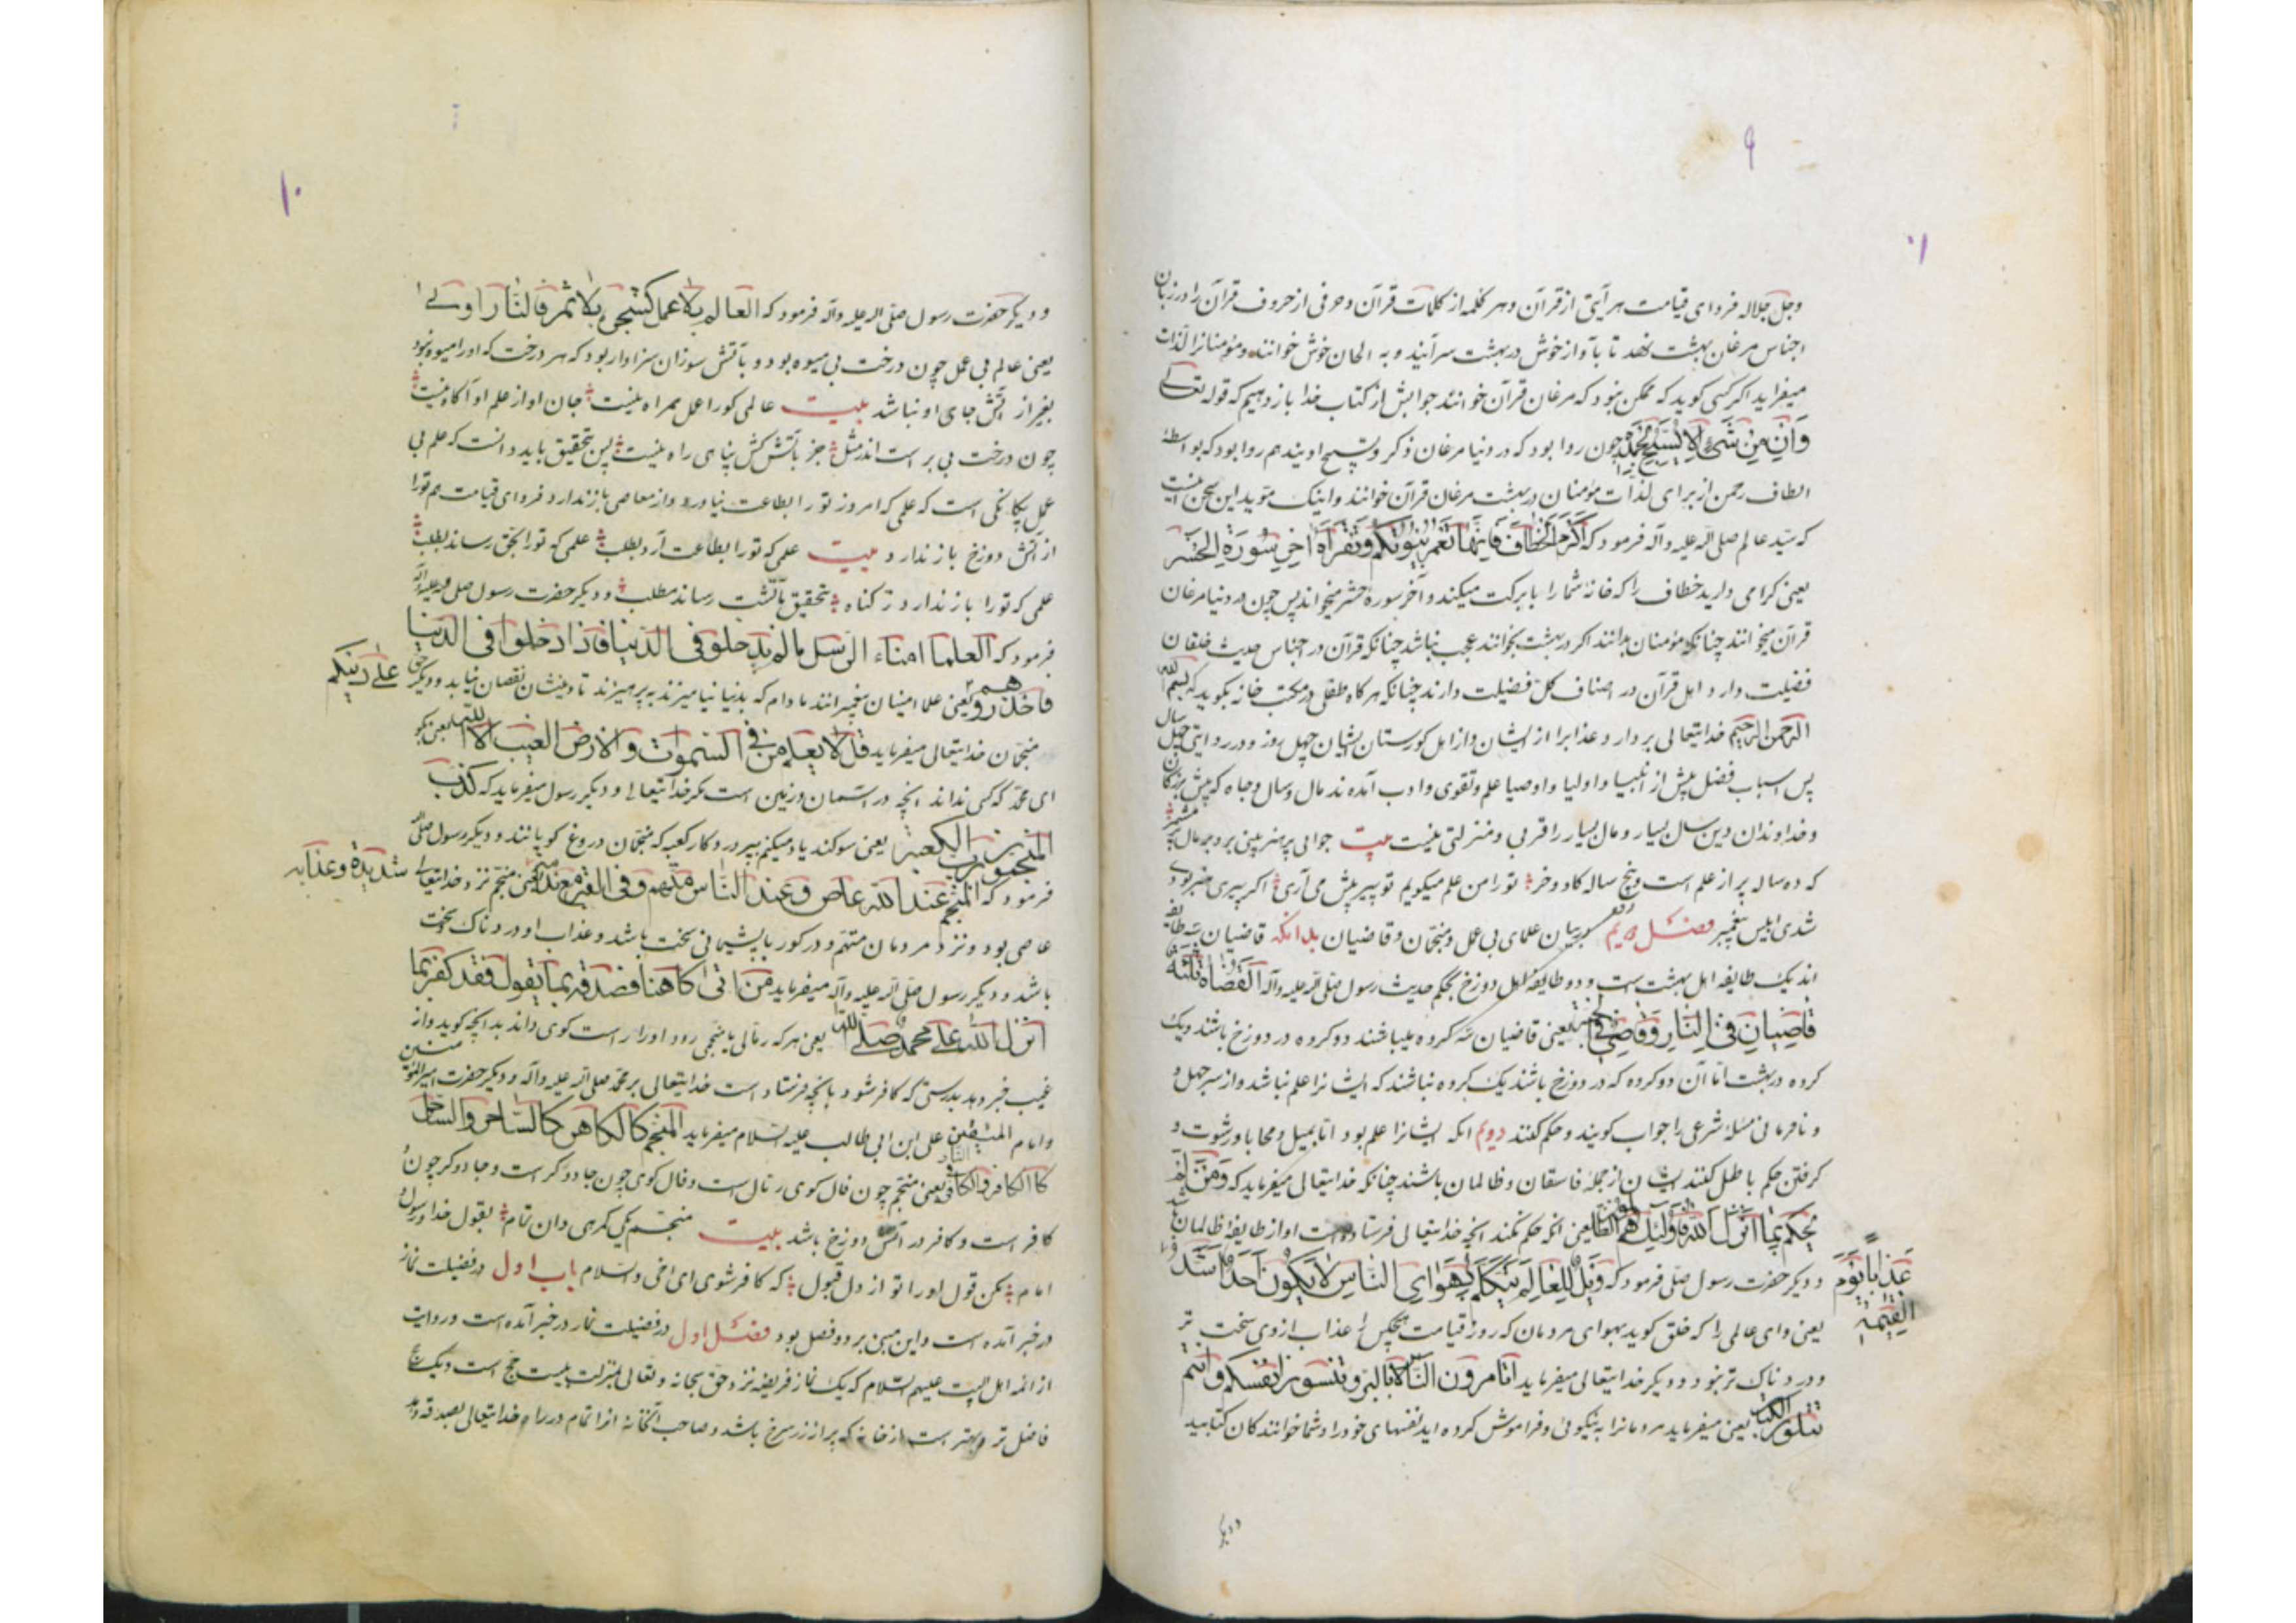 ۹
۱۰
وجل جلاله فردای قیامت هر آیتی از قرآن و هر کلمه از کلمات قرآن و حرفی از حروف قرآن را در زبان
اجناس مرغان بهشت نهد تا بآواز خوش در بهشت سرآیند و به الحان خوش خوانند و مؤمنانرا لذات
میفزاید اکر کسی کوید که ممکن نبود که مرغان قرآن خوانند جوابش از کتاب خدا باز دهیم که قوله تعالی
وَاِن مِن شَیْءٍ اِلّا یُسَبِّحُ بِحَمْدِهِ چون روا بود که در دنیا مرغان ذکر و تسبیح او بیند هم روا بود که بواسطهٔ
الطاف رحمن از برای لذات مؤمنان در بهشت مرغان قرآن خوانند و اینک مؤید این سخن اینست
که سید عالم صلی الله علیه وآله فرمود که اکرم الخطاف فانها تعمر بیوتکم وتقراه اخر سورة الحشر
یعنی کرامی دارید خطاف را که خانهٔ شما را با برکت میکند و آخر سورهٔ حشر میخواند پس چون در دنیا مرغان
قرآن میخوانند چنانکه مؤمنان بدانند اکر در بهشت بخوانند عجب نباشد چنانکه قرآن در اجناس حدیث خلقان
فضیلت دارد اهل قرآن در اصناف کل فضیلت دارند چنانکه هر کاه طفلی در مکتب خانه بکوید که بسم الله
الرحمن الرحیم خدایتعالی بردارد عذابرا از ایشان و از اهل کورستان ایشان چهل روز و در روایتی چهل سال
پس اسباب فضل پیش از انبیا و اولیا و اوصیا علم و تقوی و ادب آمده نه مال و سال و جاه که پیش بزرکان
و خداوندان دین سال بسیار و مال بسیار را قربی و منزلتی نیست بیت جوانی پر هنر بینی برو بر مال
که ده ساله پر از علم است و پنج ساله کاو و خر تو را من علم میکویم تو پیر پیش می آری اکر پیری هنر بودی
شدی ابلیس پیغمبر فصل در بیان علمای بی عمل و منجمان و قاضیان بدانکه قاضیان سه طایفه
اند یک طایفه اهل بهشت است و دو طایفه اهل دوزخ بحکم حدیث رسول صلی الله علیه وآله القضاة ثلثة
قاضیان فی النار وقاضی فی الجنة یعنی قاضیان سه کروه میباشند دو کروه در دوزخ باشند و یک
کروه در بهشت اما آن دو کروه که در دوزخ باشند یک کروه نباشند که ایشانرا علم نباشد و از سر جهل و
و نافرمانی مسئلهٔ شرعی را جواب کویند و حکم کنند دویم انکه ایشانرا علم بود اما بمیل و محابا و رشوت و
کرفتن حکم باطل کنند ایشان از جملهٔ فاسقان و ظالمان باشند چنانکه خدایتعالی میفرماید که وَمَنْ لَمْ
یحکم بما انزل الله فاولئک هم الظالمون یعنی انکه حکم نکند انچه خدایتعالی فرستاده است او از طایفهٔ ظالمان
و دیکر حضرت رسول صلی فرمود که ویل للعالم یتکلم بهوای الناس لا یکون احدا اشد
عذابا یوم القیمة
یعنی وای عالمی را که خلق کوید بهوای مردمان که روز قیامت هیچکس را عذاب از وی سخت تر
و دردناک تر نبود و دیکر خدایتعالی میفرماید اتامرون الناس بالبر وتنسون انفسکم وانتم
تتلون الکتاب یعنی میفرماید مردمانرا به نیکوئی و فراموش کرده اید نفسهای خود را و شما خوانندکان کتابید
و دیکر
۱۰
و دیکر حضرت رسول صلی الله علیه وآله فرمود که العالم بلا عمل کشجر بلا ثمر فالنار اولی
یعنی عالم بی عمل چون درخت بی میوه بود و بآتش سوزان سزاوار بود که هر درخت که او را میوه نبود
بغیر از آتش جای او نباشد بیت عالمی کورا عمل همراه نیست جان او از علم او آکاه نیست
چون درخت بی بر است اندر مثل جز بآتش پنای راه نیست پس بتحقیق باید دانست که علم بی
عمل بیکانکی است که علمی که امروز تو را بطاعت نیاورد و از معاصی باز ندارد فردای قیامت هم تو را
از آتش دوزخ باز ندارد بیت علمی که تو را بطاعت آرد بطلب علمی که تو را بحق رساند بطلب
علمی که تو را باز ندارد ز کناه تحقیق بآتشت رساند مطلب و دیکر حضرت رسول صلی الله علیه وآله
فرمود که العلما امناء الرسل مالم یدخلو فی الدنیا فاذا دخلوا فی الدنیا
فاحذروهم علی دینکم یعنی علما امینان پیغمبرانند مادام که بدنیا نیامیزند به پرهیزند تا دینشان نقصان نیابد و دیکر حق
منجمان خدایتعالی میفرماید قل لا یعلم من فی السموات والارض الغیب الا الله یعنی بکو
ای محمد که کس نداند انچه در آسمان و زمین است مکر خدایتعالی و دیکر رسول میفرماید که کذب
المنجمون برب الکعبة یعنی سوکند یاد میکنم بپروردکار کعبه که منجمان دروغ کویانند و دیکر رسول صلی
فرمود که المنجم عند الله عاص وعند الناس متهم وفی القبر مندم شدیدة وعذابه یعنی منجم نزد خدایتعالی
عاصی بود و نزد مردمان متهم و در کور با پشیمانی سخت باشد و عذاب او دردناک و سخت
باشد و دیکر رسول صلی الله علیه وآله میفرماید من اتی کاهنا فصدقه بما یقول فقد کفر بما
انزل الله علی محمد صلی الله یعنی هر که رمالی یا منجمی رود او را راست کوی داند بدانچه کوید و از
غیب خبر دهد بدرستی که کافر شود بانچه فرستاده است خدایتعالی بر محمد صلی الله علیه وآله و دیکر حضرت امیر المؤمنین
وامام المتقین علی ابن ابی طالب علیه السلام میفرماید المنجم کالکاهن کالساحر والساحر
کاالکافر والکافر فی النار یعنی منجم چون فال کوی رمال است و فال کوی چون جادوکر است و جادوکر چون
کافر است و کافر در آتش دوزخ باشد بیت منجم کی کمرهی دان تمام بقول خدا و رسول و
امام مکن قول او را تو از دل قبول که کافر شوی ای اخی والسلام باب اول در فضیلت نماز
در خبر آمده است و این مبنی بر دو فصل بود فصل اول در فضیلت نماز در خبر آمده است و روایت
از ائمه اهل بیت علیهم السلام که یک نماز فریضه نزد حق سبحانه و تعالی بمنزلت بیست حج است و یک حج
فاضل تر و بهتر است از خانه که پر از زر سرخ باشد و صاحب آنخانه انرا تمام در راه خدایتعالی بصدقه دهد